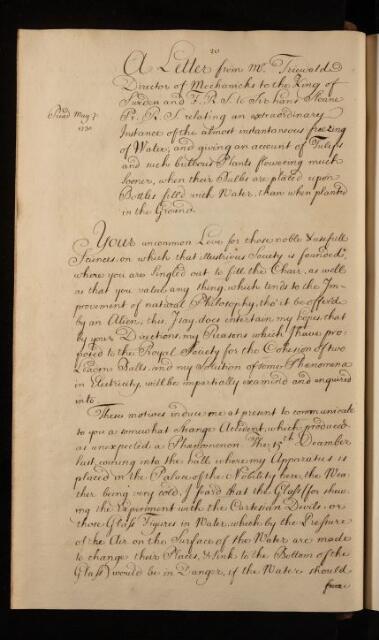 20
A Letter from Mr. Triewald
Director of Mechanicks to the King of
Sweden and F. R. S. to Sir hans Sloane
Pr. R. S. relating an extraordinary
Instance of the almost instantaneous freezing
of Water, and giving an account of Tulips
and such bulbous Plants flowering much
sooner, when their Bulbs are placed upon
Bottles fill'd with Water, than when planted
in the Ground.
Read May 7.
1730
Your uncommon Love for those noble & usefull
Sciences, on which that illustrious Society is founded,
where you are singled out to fill the Chair, as well
as that you value any thing, which tends to the Im-
provement of natural Philosophy, tho' it be offer'd
by an Alien; this, I say, does entertain my hopes, that
by your Directions, my Reasons which I have pro-
posed to the Royal Society for the Cohesion of two
Leaden Balls, and my Solution of some Phenomena
in Electricity, will be impartially examind and enquired
into.
These motives induce me at present to communicate
to you a somewhat strange Accident, which produced
as unexpected a Phænomenon. The 15th December
last coming into the hall where my Apparatus is
placed in the Palace of the Nobility here, the Wea-
ther being very cold, I feard that the Glass for shew-
ing the Experiment with the Cartesian Devils, or
those Glass Figures in Water, which by the Pressure
of the Air on the Surface of the Water are made
to change their Places, & sink to the Bottom of the
Glass) would be in Danger, if the Water should
freeze